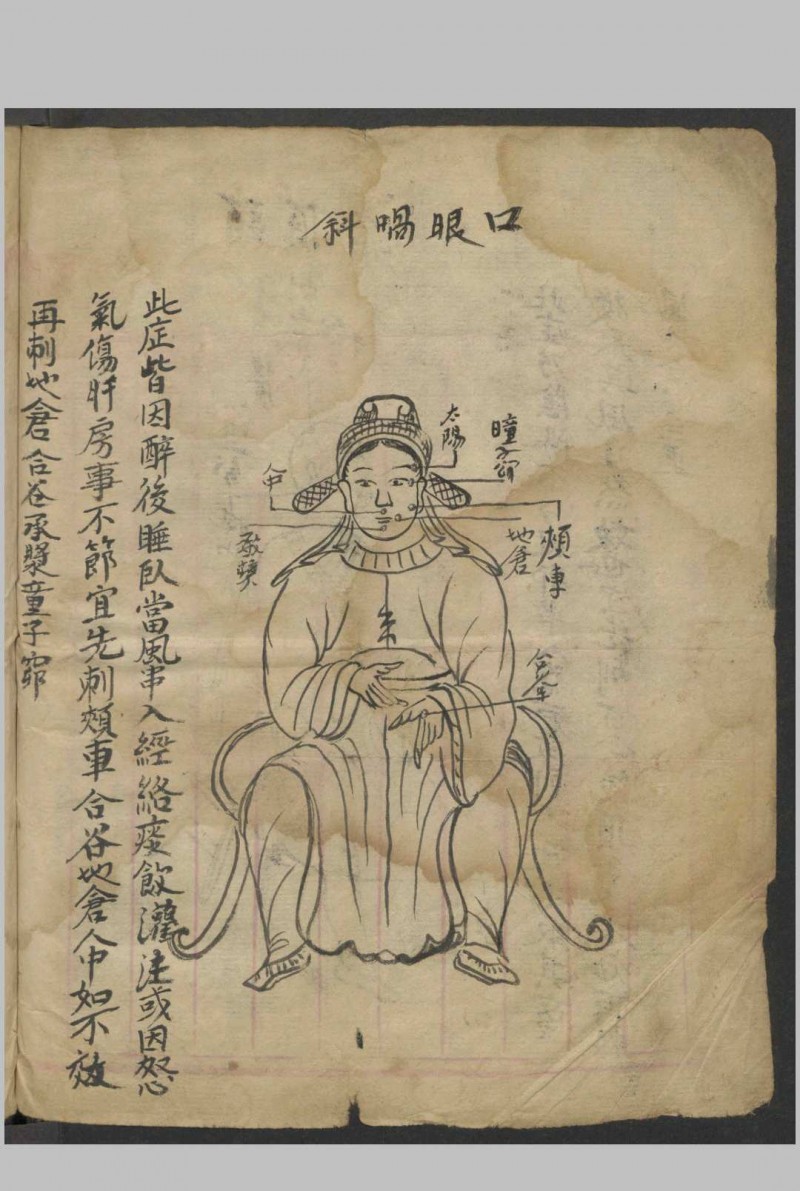 口眼喎斜
太陽
瞳子窌
人中
承漿
地倉
頰車
合谷
此症皆因醉後睡臥當風串入經絡痰飲灌注或因怒
氣傷肝房事不節宜先刺頰車合谷地倉人中如不效
再刺地倉合谷承漿童子窌